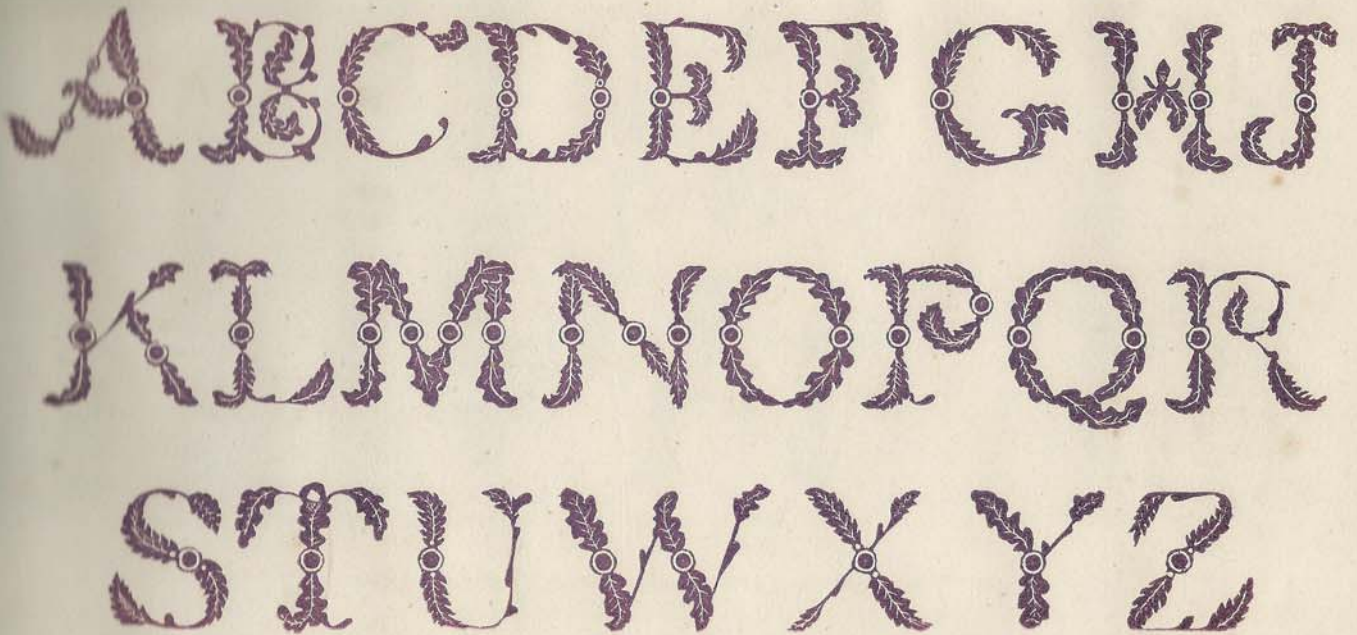 ABCDEFGHJ
KLMNOPQR
STUWXYZ